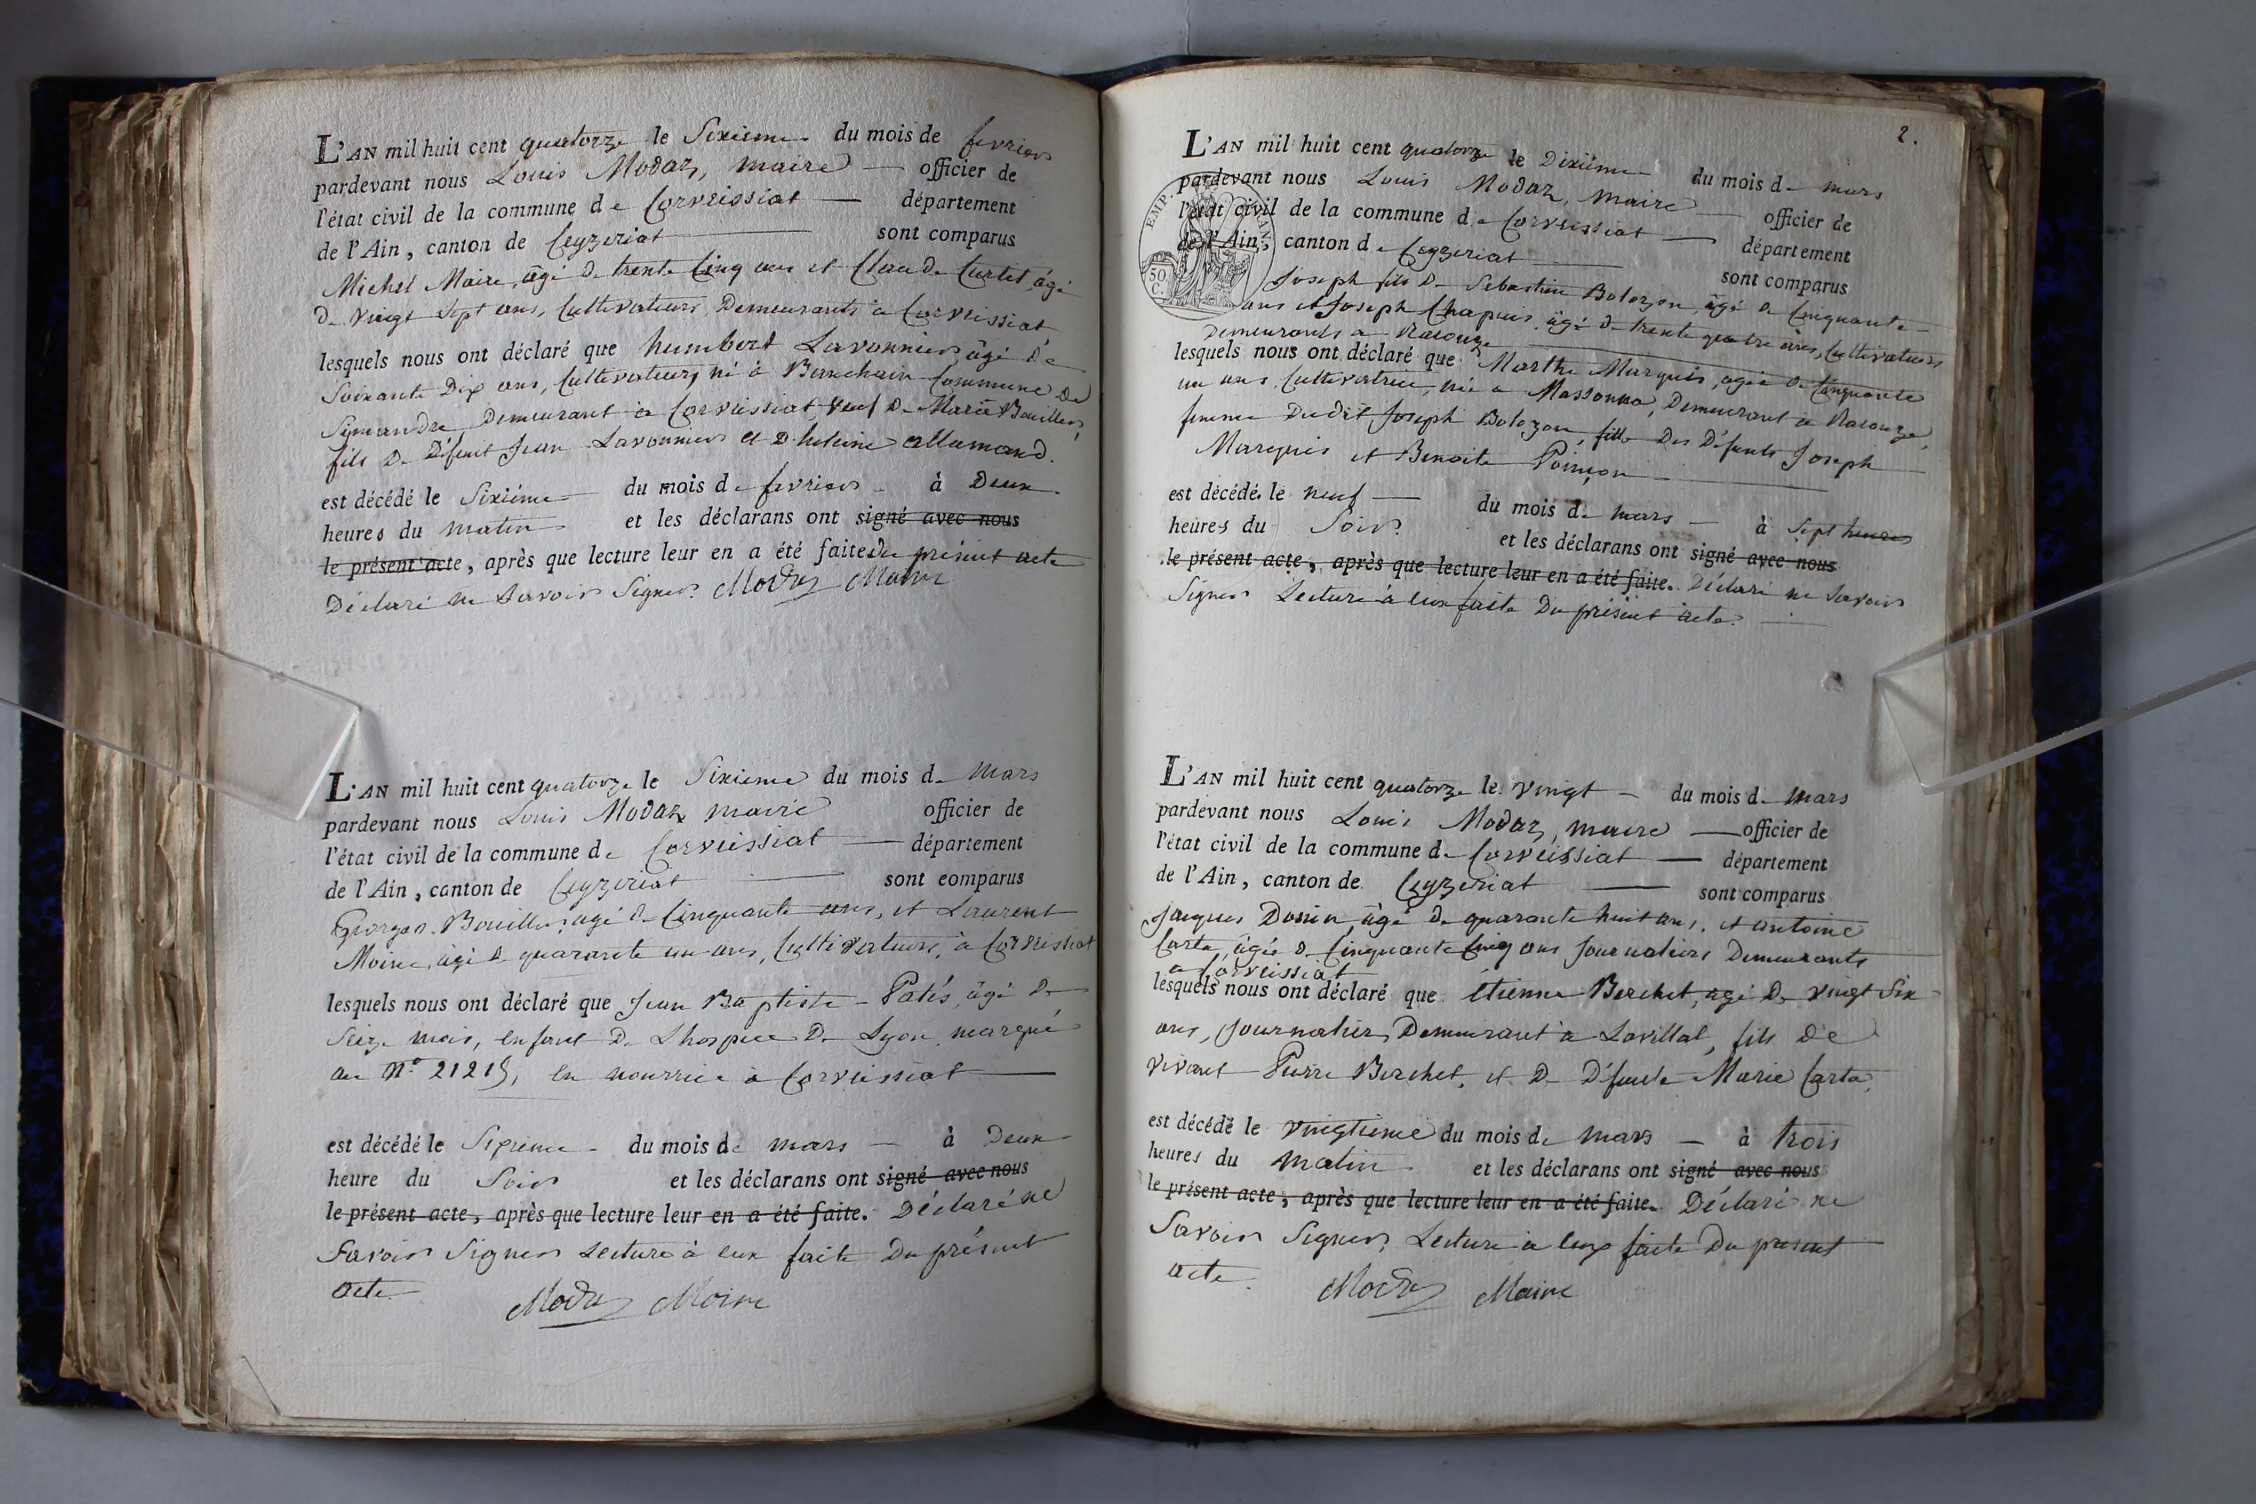 L'AN mil huit cent quatorze le Sixieme du mois de fevrier
pardevant nous Louis Modaz, maire officier de
l'état civil de la commune de Corveissiat département
de l'Ain, canton de Ceyzeriat sont comparus
Michel Maire, âgé de trente Cinq ans et Claude Curtet, âgé
de vingt sept ans, Cultivateurs Demeurants à Corveissiat
lesquels nous ont déclaré que humbert Lavonnier âgé de
Soixante Dix ans, Cultivateur, né à Commune de
Simandre Demeurant à Corveissiat veuf De Marie Bouiller,
fils De Défunt Jean Lavonnier et D'heleine allamand.
est décédé le Sixiéme du mois de fevrier à Deux
heures du matin et les déclarans ont signé avec nous
le présent acte, après que lecture leur en a été faite du présent acte
Déclaré ne Savoir Signer. Modaz Maire
L'AN mil huit cent quatorze le Sixieme du mois de Mars
pardevant nous Louis Modaz maire officier de
l'état civil de la commune de Corveissiat département
de l'Ain, canton de Ceyzeriat sont comparus
Georges Bouiller, agé de Cinquante ans, et Laurent
Moine, âgé de quarante un ans, Cultivateurs, à Corveissiat
lesquels nous ont déclaré que Jean Baptiste Patés, âgé De
Seize mois, enfant De Lhospice De Lyon, marqué
au N.º 21215, en nourrice à Corveissiat
est décédé le Sixieme du mois de mars à Deux
heure du Soir et les déclarans ont signé avec nous
le présent acte, après que lecture leur en a été faite. Déclaré ne
Savoir Signer Lecture à eux faite Du présent
acte. Modaz Maire
2.
L'AN mil huit cent quatorze le Dixiéme du mois de mars
pardevant nous Louis Modaz, maire officier de
l'état civil de la commune de Corveissiat département
de l'Ain, canton de Ceyzeriat sont comparus
EMP. 50 C.
Joseph fils De Sebastien Bolozon, âgé de Cinquante
ans et Joseph Chapuis, âgé De trente quatre ans, Cultivateurs
Demeurants a Racouze
lesquels nous ont déclaré que Marthe Marquis, agée de Cinquante
un ans, Cultivatrice, née a Massonna, Demeurant à Racouze,
femme Dudit Joseph Bolozon, fille Des Défunts Joseph
Marquis et Benoite Poinçon
est décédé le neuf du mois de mars à Sept heures
heures du Soir et les déclarans ont signé avec nous
le présent acte, après que lecture leur en a été faite. Déclaré ne Savoir
Signer Lecture à eux faite Du présent acte.
L'AN mil huit cent quatorze le vingt du mois de mars
pardevant nous Louis Modaz, maire officier de
l'état civil de la commune de Corveissiat département
de l'Ain, canton de Ceyzeriat sont comparus
Jacques Donin, âgé de quarante huit ans, et antoine
Carta, âgée de Cinquante Cinq ans Journaliers Demeurants
a Corveissiat
lesquels nous ont déclaré que étienne Berchet, agé De vingt Six
ans, Journalier Demeurant a Lavillat, fils De
vivant Pierre Berchet, et De Défunte Marie Carta,
est décédé le vingtiéme du mois de mars à trois
heures du Matin et les déclarans ont signé avec nous
le présent acte, après que lecture leur en a été faite. Déclaré ne
Savoir Signer, Lecture à eux faite Du present
acte. Modaz Maire